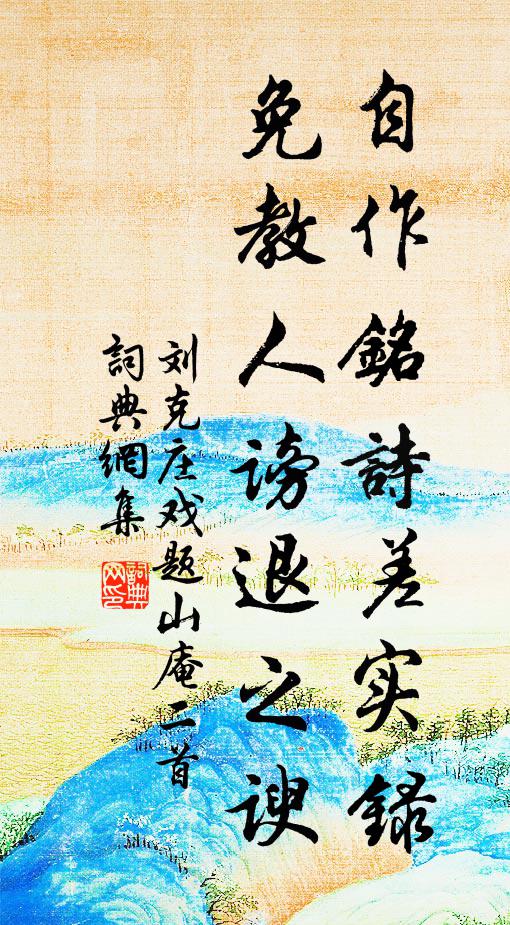 自作銘詩差实録
免教人謗退之諛
刘克庄戏题山庵二首
詞典網集
詞典网印